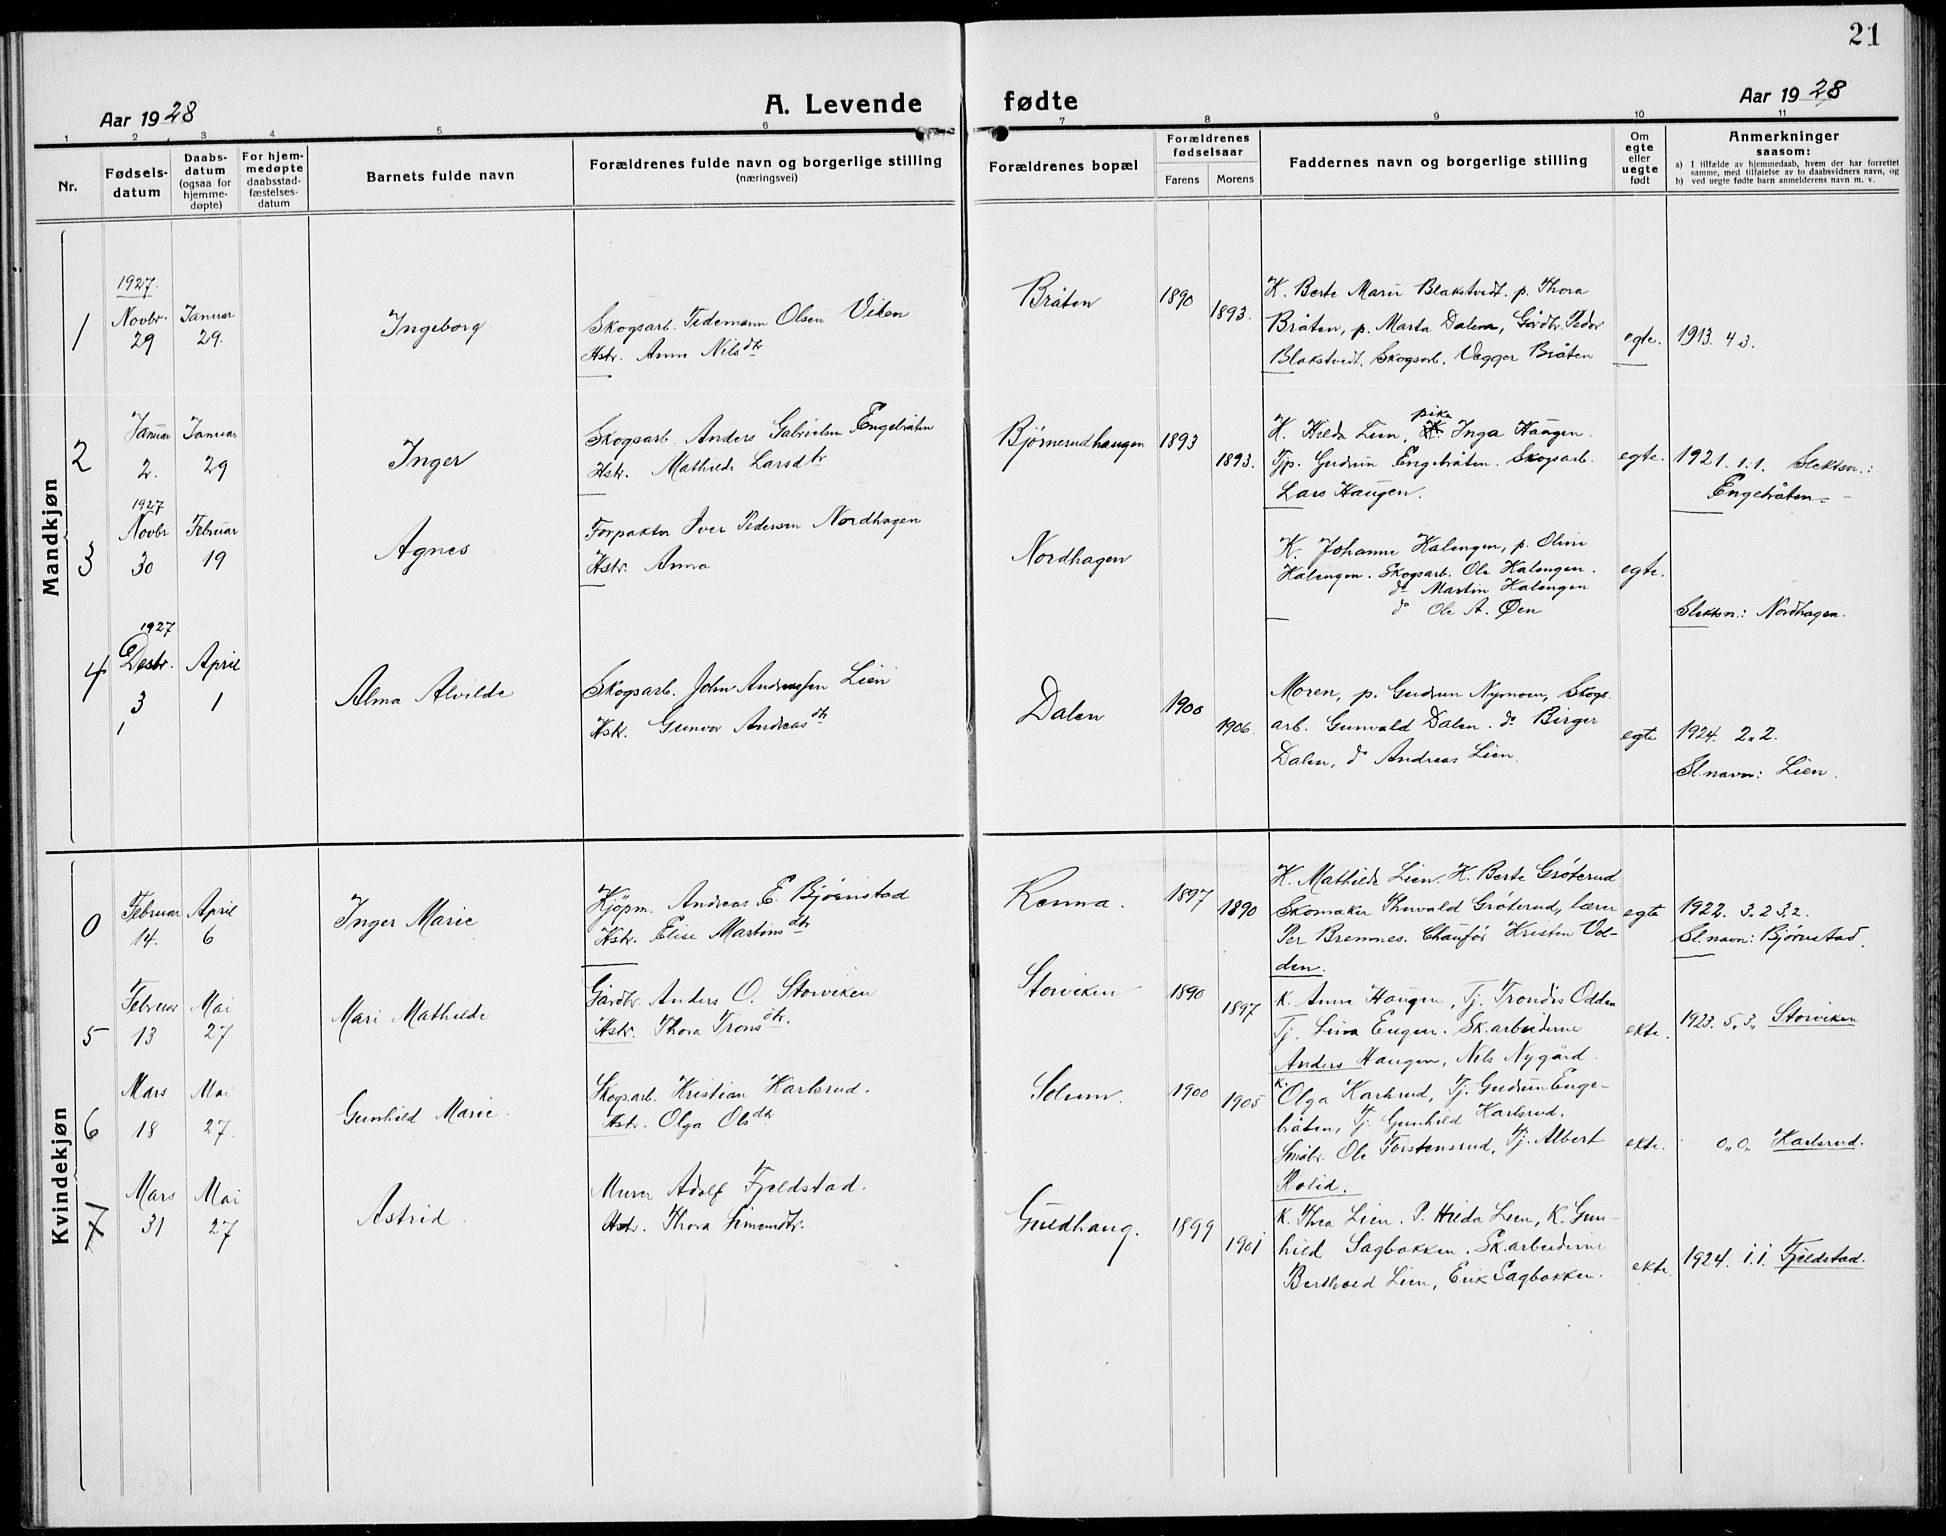 21
Aar 1928
A. Levende fødte
Aar 1928
1 2 3 4 5 6 7 8 9 10 11
Nr.
Fødsels-
datum
Daabs-
datum
(ogsaa for
hjemme-
døpte)
For hjem-
medøpte
daabsstad-
fæstelses-
datum
Barnets fulde navn
Forældrenes fulde navn og borgerlige stilling
(næringsvei)
Forældrenes bopæl
Forældrenes
fødselsaar
Farens Morens
Faddernes navn og borgerlige stilling
Om
egte
eller
uegte
født
Anmerkninger
saasom:
a) I tilfælde av hjemmedaab, hvem der har forrettet
samme, med tilføielse av to daabsvidners navn, og
b) ved uegte fødte barn anmelderens navn m. v.
Mandkjøn
1
1927.
Novbr.
29
Januar
29.
Ingeborg
Skogsarb. Tedemann Olsen Viken
Hstr. Anne Nilsdtr
Bråten
1890
1893.
K. Berte Marie Blakstvedt. p. Thora
Bråten, p. Marta Dalen, Gårdbr. Peder
Blakstvedt. Skogsarb. Vegger Bråten
egte.
1913. 4 3.
2
Januar
2.
Januar
29
Inger
Skogsarb. Anders Gabrielsen Engebråten
Hstr. Mathilde Larsdtr
Bjørnerudhaugen
1893
1893.
pike
K. Hilda Lien, K. Inga Haugen.
Tjp. Gudrun Engebråten. Skogsarb.
Lars Haugen.
egte.
1921. 1.1. Slektsn.:
Engebråten.
3
1927
Novbr
30
Februar
19
Agnes
Forpakter Iver Pedersen Nordhagen
Hstr. Anna
Nordhagen
K. Johanne Halengen, p. Oline
Halengen. Skogsarb. Ole Halengen.
do Martin Halengen
do Ole A. Øen
egte.
Slektsn.: Nordhagen.
4
1927
Desbr.
3
April
1
Alma Alvilde
Skogsarb. John Andreassen Lien
Hstr. Gunvor Andreasdtr
Dalen
1900
1906.
Moren, p. Gudrun Nymoen, Skogs-
arb. Gunvald Dalen. do Birger
Dalen, do Andreas Lien.
egte
1924. 2.2.
Sl.navn: Lien.
Kvindekjøn
0
Februar
14.
April
6
Inger Marie
Kjöpm. Andreas E. Bjørnstad
Hstr. Elise Martinsdtr
Renna.
1897
1890
K. Mathilde Lien. K. Berte Gróterud
Skomaker Thorvald Gróterud, lærer
Per Bremnes. Chauför Kristen Vol-
den.
egte
1922. 3. 2 3,2.
Sl.navn: Bjørnstad.
5
Februar
13
Mai
27
Mari Mathilde
Gårdbr. Anders O. Storviken
Hstr. Thora Tronsdtr.
Storviken
1890
1897
K. Anne Haugen, Tj. Trondis Odden
Tj. Lina Eugen. Sk.arbeiderne
Anders Haugen, Nils Nygård.
ekte.
1923. 5. 3. Storviken
6
Mars
18
Mai
27.
Gunhild Marie.
Skogsarb. Kristian Karlsrud.
Hstr. Olga Olsdtr
Solum.
1900
1905
K. Olga Karlsrud, Tj. Gudrun Enge-
bråten, Tj. Gunhild Karlsrud.
Småbr. Ole Torstensrud, Tj. Albert
Rolid.
ekte.
0,, 0,, Karlsrud.
7
Mars
31
Mai
27
Astrid.
Murer Adolf Fjeldstad.
Hstr. Thora Simensdtr.
Guldhaug.
1899
1901
K. Thea Lien. P. Hilda Lien, K. Gun-
hild Sagbakken. Sk.arbeiderne
Berthold Lien, Erik Sagbakken.
ekte.
1924. 1.1. Fjeldstad.